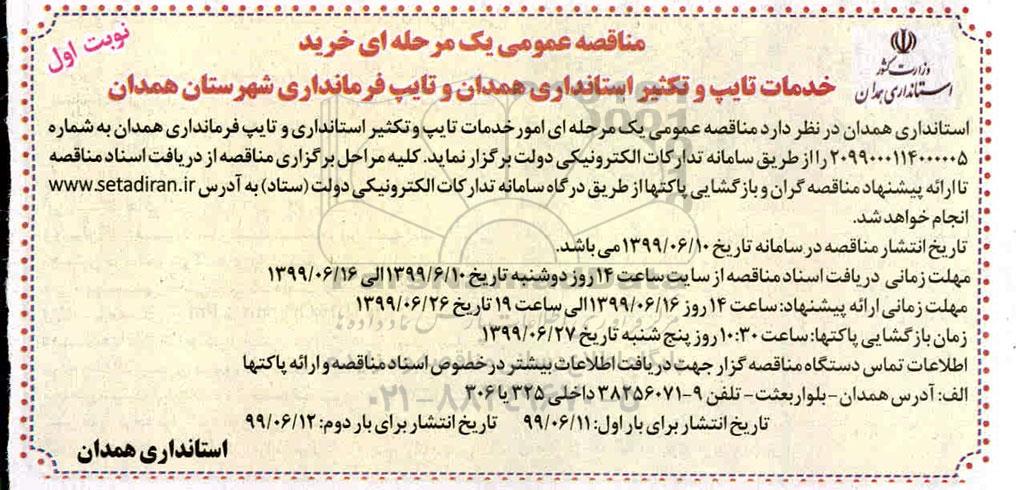 نوبت اول
وزارت کشور
استانداری همدان
مناقصه عمومی یک مرحله ای خرید
خدمات تایپ و تکثیر استانداری همدان و تایپ فرمانداری شهرستان همدان
استانداری همدان در نظر دارد مناقصه عمومی یک مرحله ای امور خدمات تایپ و تکثیر استانداری و تایپ فرمانداری همدان به شماره
۲۰۹۹۰۰۰۱۱۴۰۰۰۰۰۵ را از طریق سامانه تدارکات الکترونیکی دولت برگزار نماید. کلیه مراحل برگزاری مناقصه از دریافت اسناد مناقصه
تا ارائه پیشنهاد مناقصه گران و بازگشایی پاکتها از طریق درگاه سامانه تدارکات الکترونیکی دولت (ستاد) به آدرس www.setadiran.ir
انجام خواهد شد.
تاریخ انتشار مناقصه در سامانه تاریخ ۱۳۹۹/۰۶/۱۰ می باشد.
مهلت زمانی دریافت اسناد مناقصه از سایت ساعت ۱۴ روز دوشنبه تاریخ ۱۳۹۹/۶/۱۰ الی ۱۳۹۹/۰۶/۱۶
مهلت زمانی ارائه پیشنهاد: ساعت ۱۴ روز ۱۳۹۹/۰۶/۱۶ الی ساعت ۱۹ تاریخ ۱۳۹۹/۰۶/۲۶
زمان بازگشایی پاکتها: ساعت ۱۰:۳۰ روز پنج شنبه تاریخ ۱۳۹۹/۰۶/۲۷
اطلاعات تماس دستگاه مناقصه گزار جهت دریافت اطلاعات بیشتر در خصوص اسناد مناقصه و ارائه پاکتها
الف: آدرس همدان - بلوار بعثت - تلفن ۹-۳۸۲۵۶۰۷۱ داخلی ۳۲۵ یا ۳۰۶
تاریخ انتشار برای بار اول: ۹۹/۰۶/۱۱ تاریخ انتشار برای بار دوم: ۹۹/۰۶/۱۲
استانداری همدان